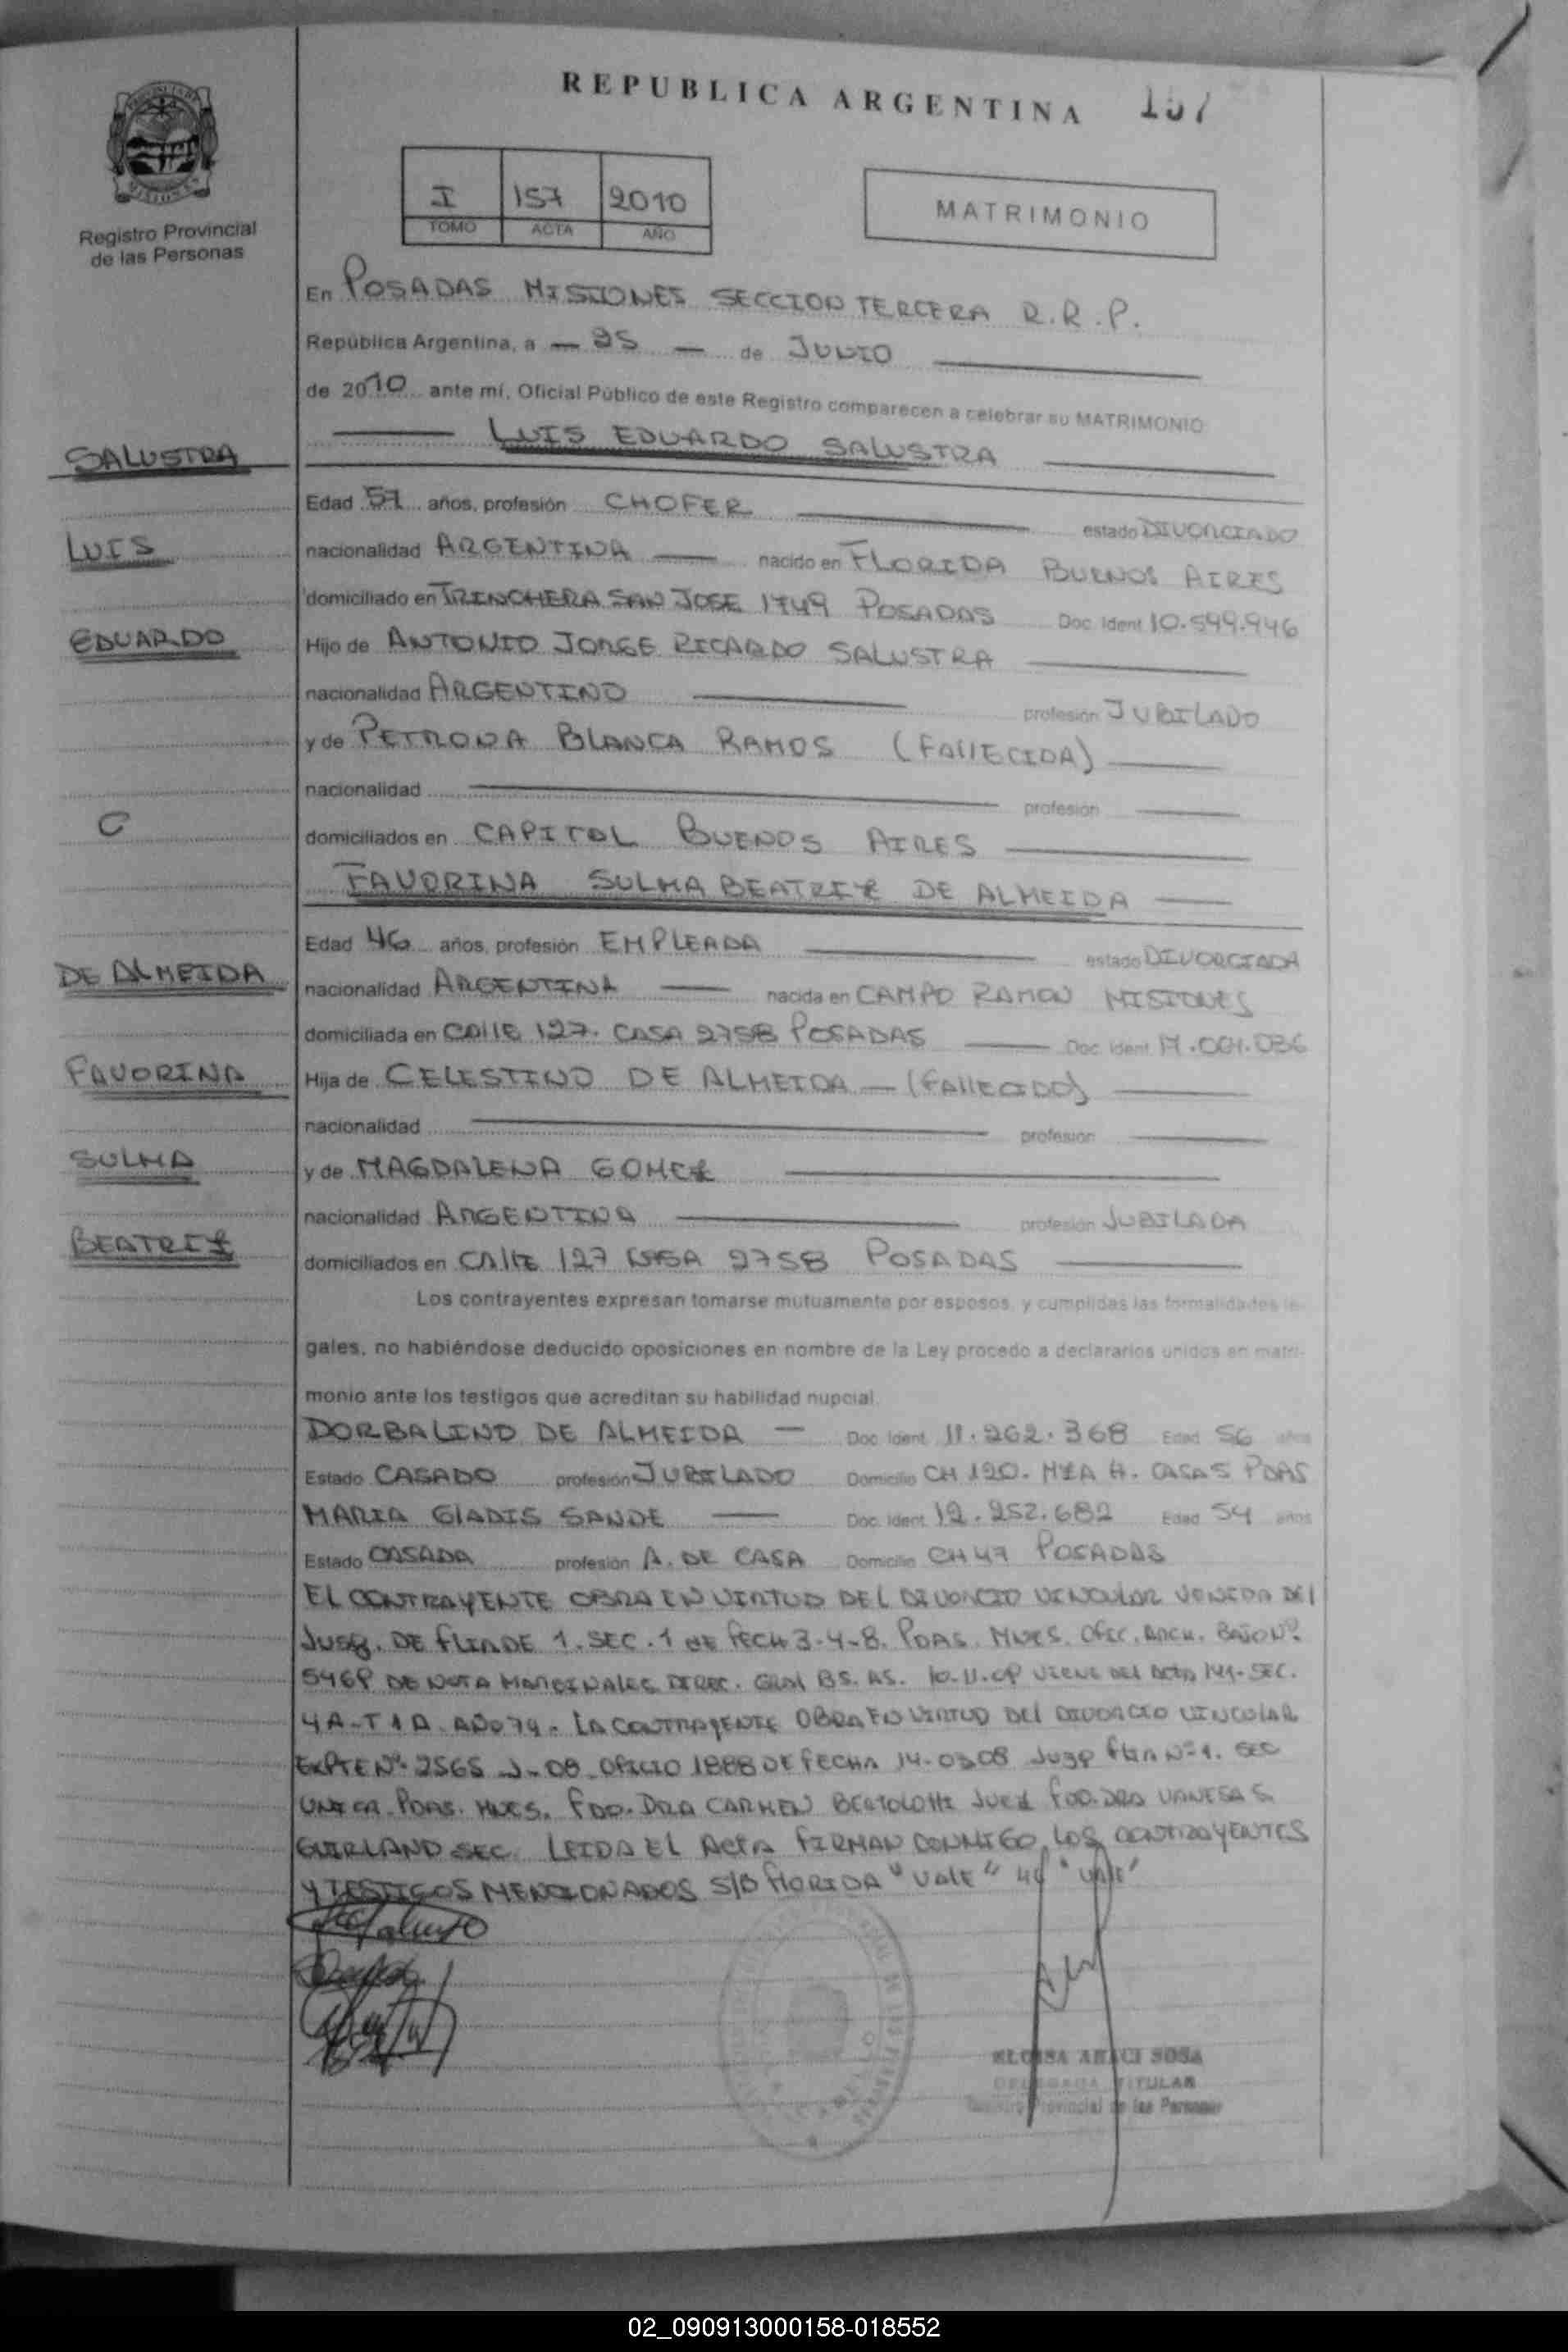 REPUBLICA ARGENTINA 157
Registro Provincial
de las Personas
I 157 2010
TOMO ACTA AÑO
MATRIMONIO
En POSADAS MISIONES SECCION TERCERA R.R.P.
República Argentina, a — 25 — de JUNIO
de 2010 ante mí, Oficial Público de este Registro comparecen a celebrar su MATRIMONIO
SALUSTRA
LUIS EDUARDO SALUSTRA
Edad 57 años, profesión CHOFER estado DIVORCIADO
LUIS
nacionalidad ARGENTINA nacido en FLORIDA BUENOS AIRES
domiciliado en TRINCHERA SAN JOSE 1749 POSADAS Doc. Ident 10.599.946
EDUARDO
Hijo de ANTONIO JORGE RICARDO SALUSTRA
nacionalidad ARGENTINO profesión JUBILADO
y de PETRONA BLANCA RAMOS (FALLECIDA)
nacionalidad profesión
C
domiciliados en CAPITAL BUENOS AIRES
FAVORINA SULMA BEATRIZ DE ALMEIDA
Edad 46 años, profesión EMPLEADA estado DIVORCIADA
DE ALMEIDA
nacionalidad ARGENTINA nacida en CAMPO RAMON MISIONES
domiciliada en CALLE 127. CASA 2758 POSADAS Doc. Ident
FAVORINA
Hija de CELESTINO DE ALMEIDA — (FALLECIDO)
nacionalidad profesión
SULMA
y de MAGDALENA GOMEZ
nacionalidad ARGENTINA profesión JUBILADA
BEATRIZ
domiciliados en CALLE 127 CASA 2758 POSADAS
Los contrayentes expresan tomarse mutuamente por esposos, y cumplidas las formalidades le-
gales, no habiéndose deducido oposiciones en nombre de la Ley procedo a declararlos unidos en matri-
monio ante los testigos que acreditan su habilidad nupcial.
DORBALINO DE ALMEIDA — Doc. Ident 11.262.368 Edad 56 años
Estado CASADO profesión JUBILADO Domicilio CH 120. MZA H. CASA 5 PDAS
MARIA GLADIS SANDE Doc. Ident 12.252.682 Edad 54 años
Estado CASADA profesión A. DE CASA Domicilio CH 47 POSADAS
EL CONTRAYENTE OBRA EN VIRTUD DEL DIVORCIO VINCULAR VENIDA DEL
JUZG. DE FLIA DE 1. SEC. 1 DE FECH 3-4-8. PDAS. MNES. OFIC. BAJO Nº
DE NOTA MARGINALES DIREC. GRAL BS. AS. VIENE DEL ACTA 141-SEC.
4A-T 1 A. AÑO 79. LA CONTRAYENTE OBRA EN VIRTUD DEL DIVORCIO VINCULAR
EXPTE Nº 2565 J-08 OFICIO 1888 DE FECHA 14-03-08 JUZG FLIA Nº 1. SEC
UNICA. PDAS. MNES. FDO. DRA CARMEN BERTOLOTTI JUEZ FDO. DRA VANESA S.
GUIRLAND SEC. LEIDA EL ACTA FIRMAN CONMIGO LOS CONTRAYENTES
Y TESTIGOS MENCIONADOS S/B FLORIDA "VALE" 46 "VALE"
SOSA
DELEGADA TITULAR
Registro Provincial de las Personas
02_090913000158-018552